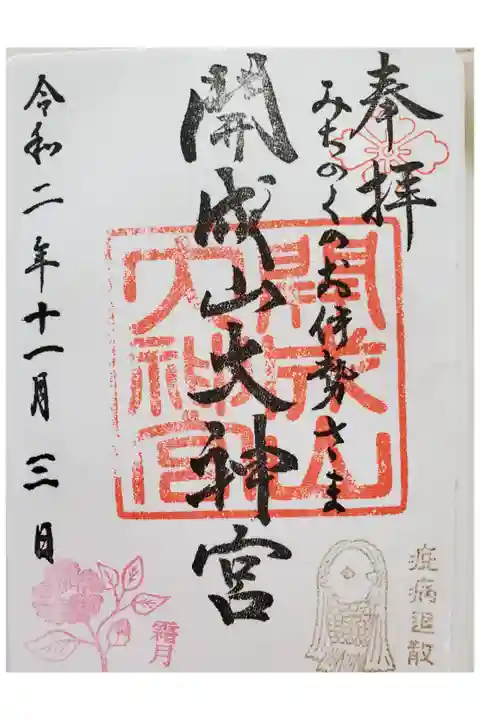 奉拝
みちのくのお伊勢さま
開成山大神宮
開成山
大神宮
令和二年十一月三日
霜月
疫病退散